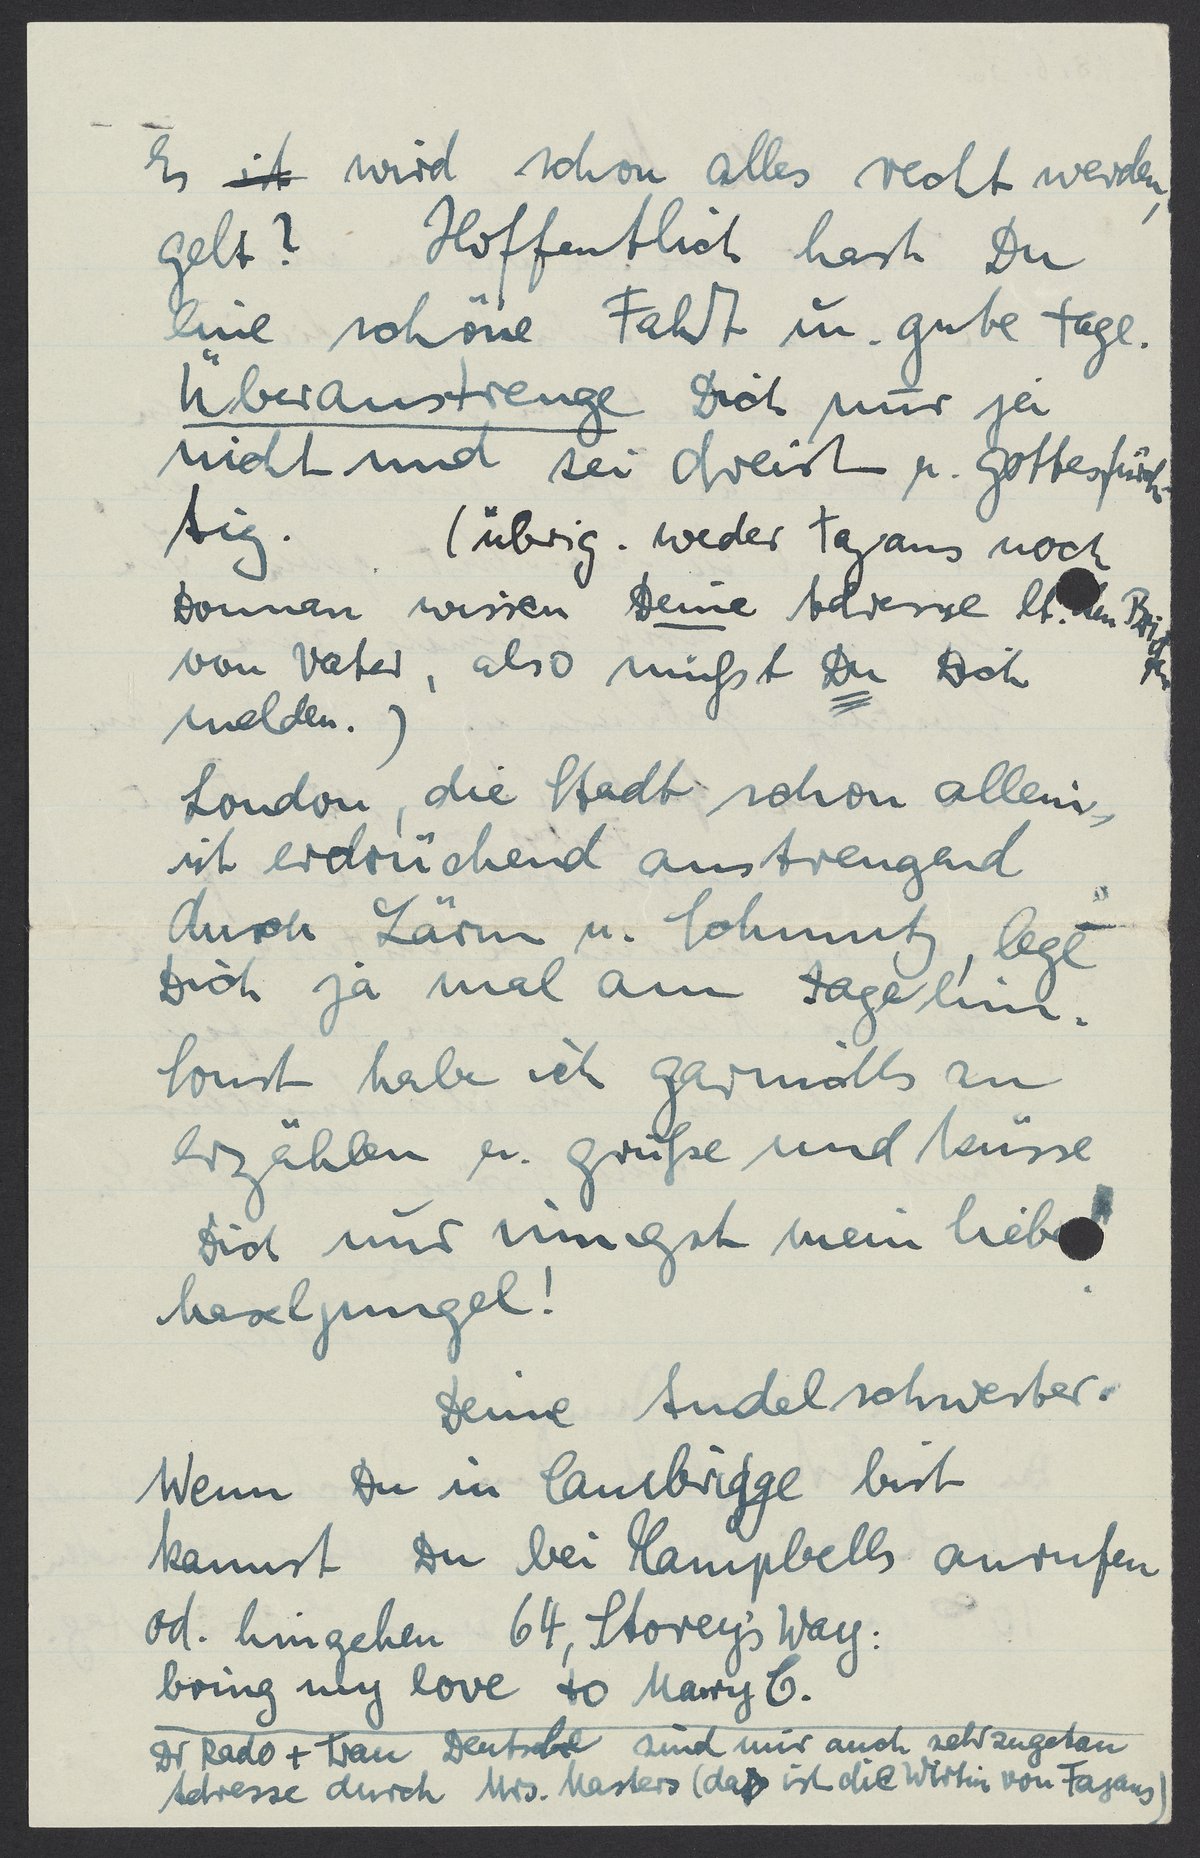 Es ist wird schon alles recht werden,
gelt? Hoffentlich hast Du
eine schöne Fahrt u. gute Tage.
Überanstrenge Dich nur ja
nicht und sei dreist u. gottesfürch-
tig. (übrig. weder Fajans noch
Donnan wissen Deine Adresse lt. den
von Vater, also müßt Du Dich
melden.)
London, die Stadt schon allein,
ist erdrückend anstrengend
durch Lärm u. Schmutz, lege
Dich ja mal am Tage hin.
Sonst habe ich garnichts zu
erzählen u. grüße und küsse
Dich nur innigst mein liebes
haseljungel!
Deine Andelschwester.
Wenn Du in Cambrigge bist
kannst Du bei Kampbells anrufen
od. hingehen 64, Storey's Way:
bring my love to Mary C.
Dr Rado + Frau Deutsche sind mir auch sehr zugetan
Adresse durch Mrs. Masters (das ist die Wirtin von Fajans)